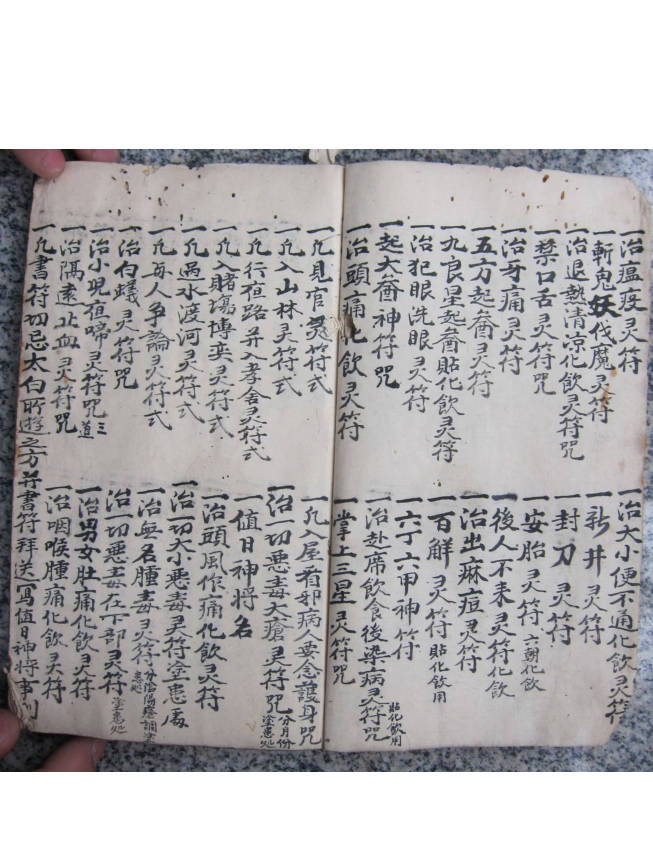 一治瘟疫灵符
一斬鬼妖伐魔灵符
一治退熱清凉化飲灵符咒
一禁口舌灵符咒
一治身痛灵符
五方起煞灵符
一九良星起煞貼化飲灵符
一治犯眼洗眼灵符
一起大煞神符咒
一治頭痛化飲灵符
一治大小便不通化飲灵符
一新井灵符
一封刀灵符
一安胎灵符 六朝化飲
一後人不来灵符化飲
一治出麻痘灵符
一百解灵符貼化飲用
一六丁六甲神符
一治赴席飲食後染病灵符咒 貼化飲用
一掌上三星灵符咒
一凡見官灵符式
一凡入山林灵符式
一凡行夜路并入孝舍灵符式
一凡入賭場博奕灵符式
一凡過水渡河灵符式
一凡每人争論灵符式
一治白蟻灵符咒
一治小児夜啼灵符咒三道
一治隔遠止血灵符咒
一凡書符切忌太白所遊之方并書符拜送寫值日神將事
一凡入屋看邪病人要念護身咒
一治一切惡毒大瘡灵符咒 分月份塗患处
一值日神將名
一治頭風作痛化飲灵符
一治一切大小惡毒灵符塗患處
一治無名腫毒灵符
一治一切惡毒在下部灵符 塗患处
一治男女肚痛化飲灵符
一治咽喉腫痛化飲灵符